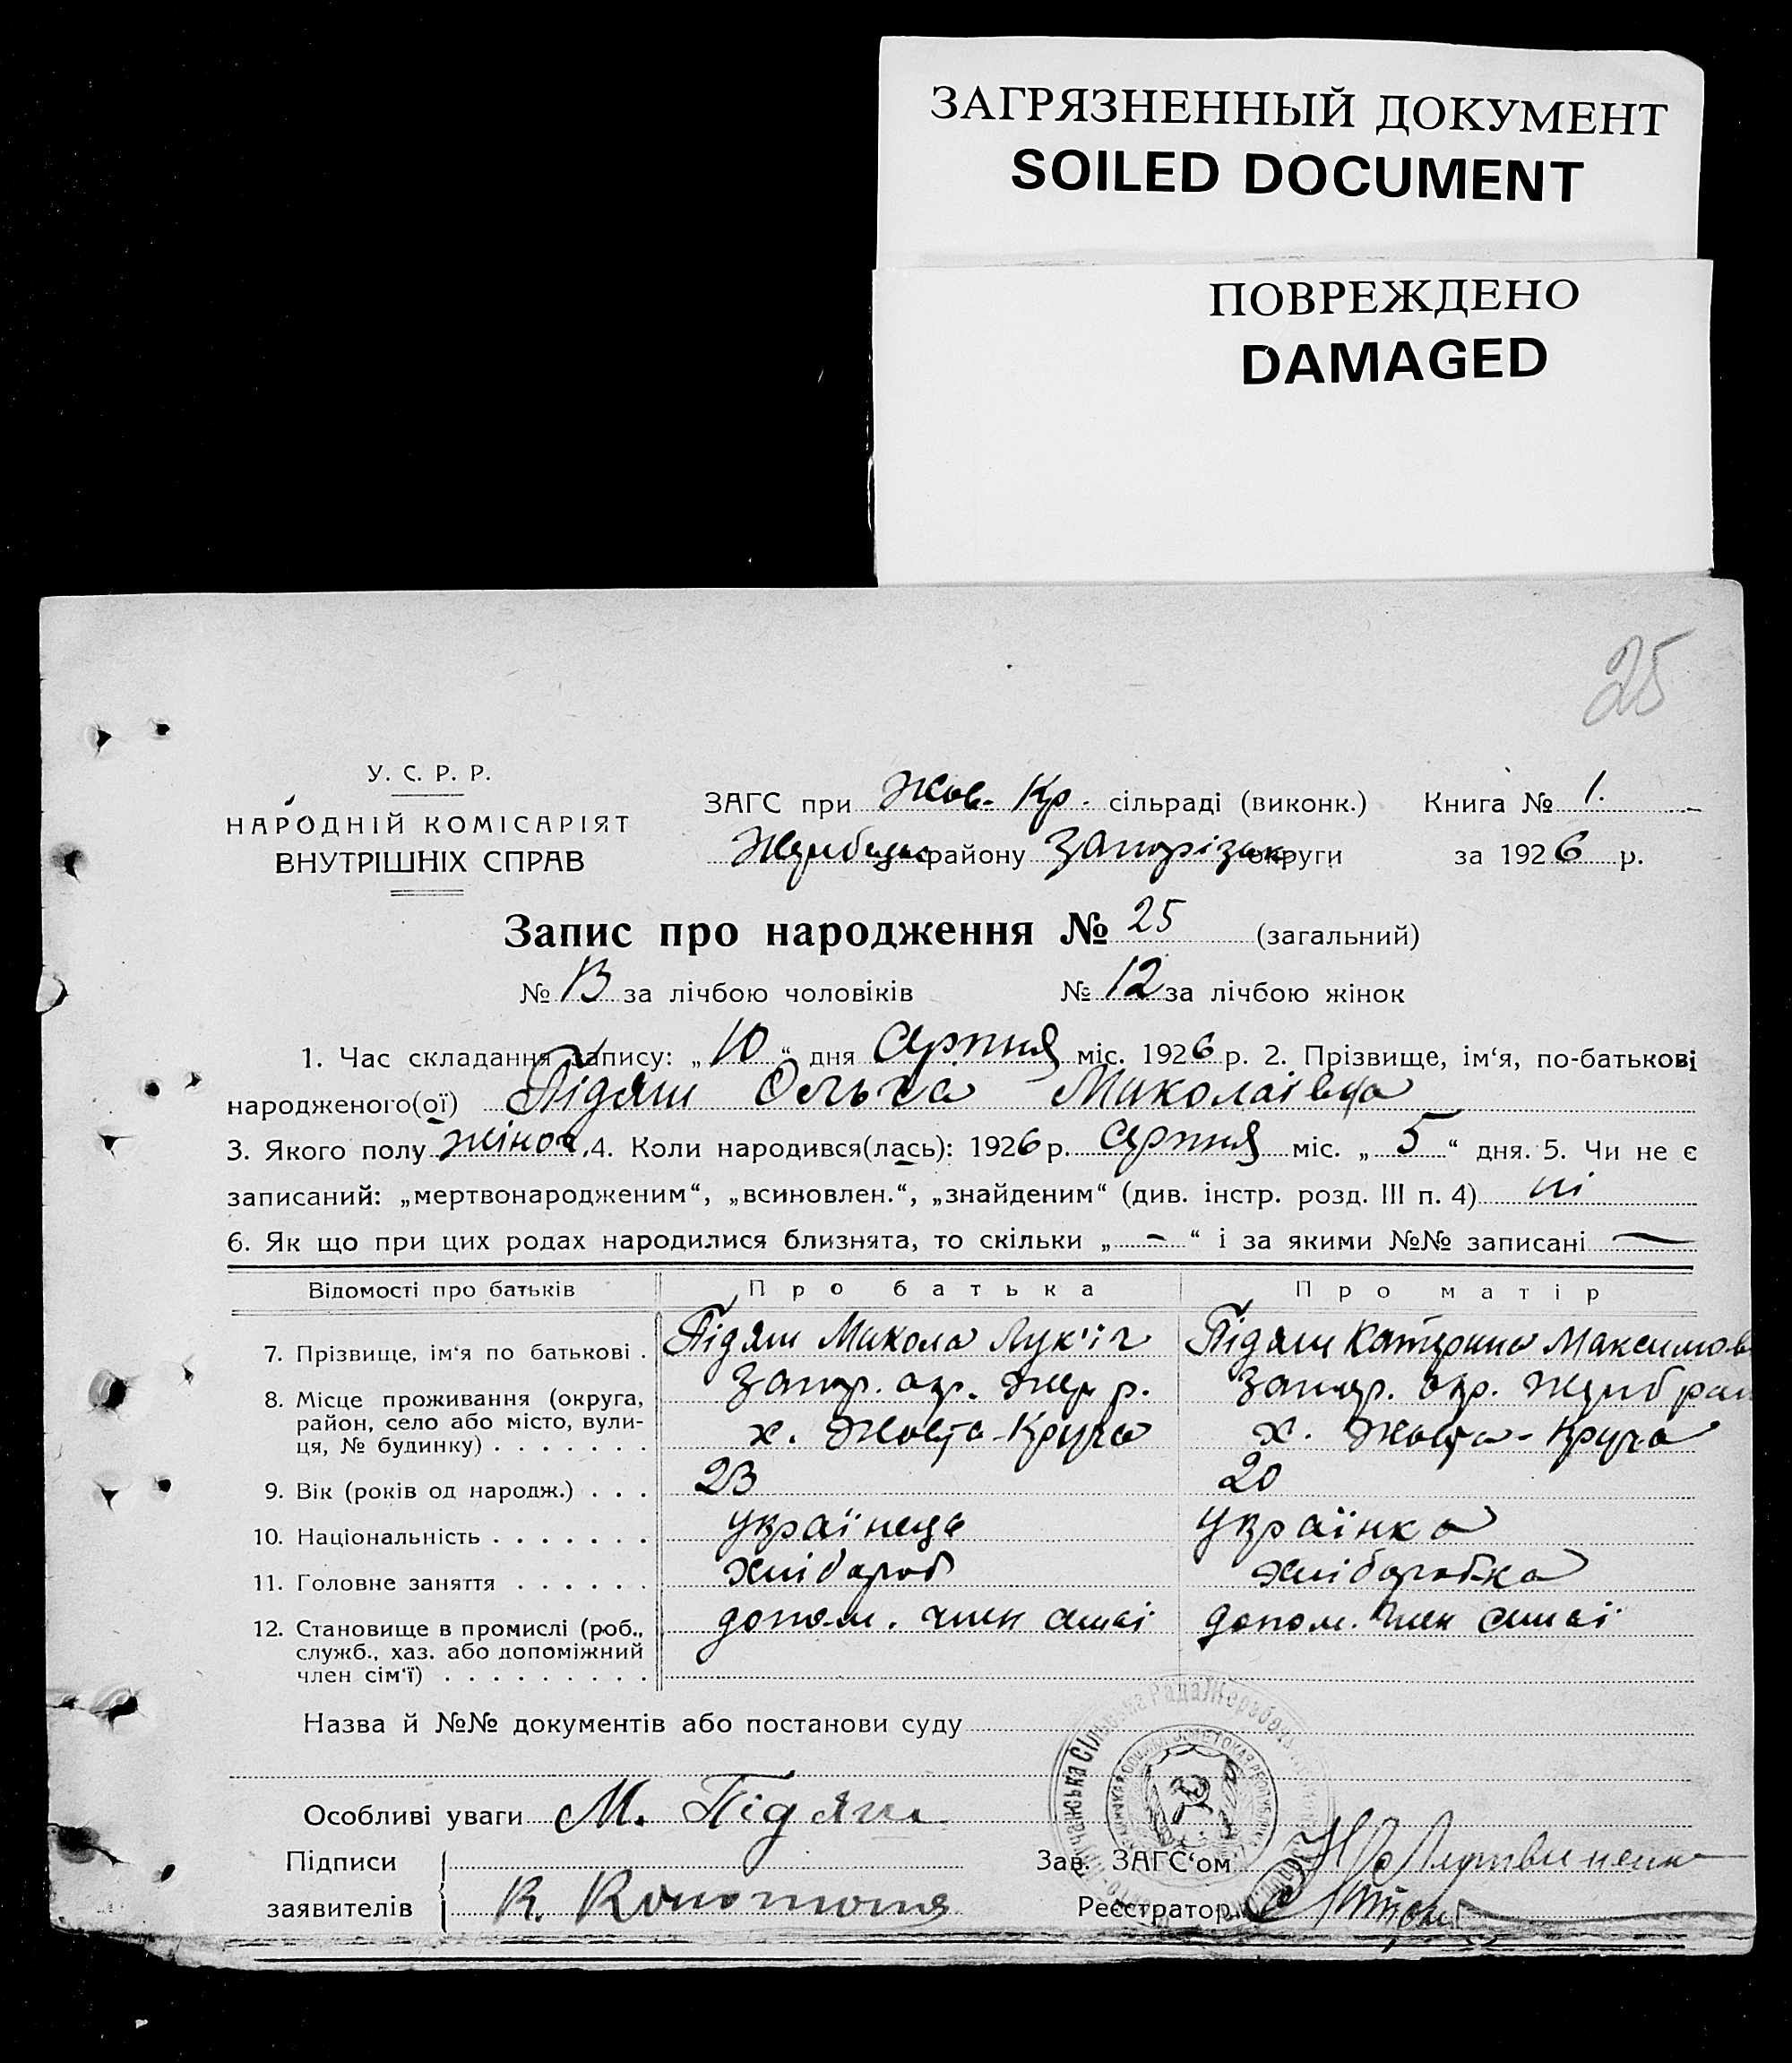 ЗАГРЯЗНЕННЫЙ ДОКУМЕНТ
SOILED DOCUMENT
ПОВРЕЖДЕНО
DAMAGED
25
У. С. Р. Р.
НАРОДНІЙ КОМІСАРІЯТ
ВНУТРІШНІХ СПРАВ
ЗАГС при Жов. Кр. сільраді (виконк.) Книга № 1.
району Запорізьк округи за 1926 р.
Запис про народження № 25 (загальний)
№ 13 за лічбою чоловіків № 12 за лічбою жінок
1. Час складання запису: „10“ дня Серпня міс. 1926 р. 2. Прізвище, ім‘я, по-батькові
народженого(ої) Підяш Ольга Миколаївна
3. Якого полу жіноч. 4. Коли народився(лась): 1926 р. Серпня міс. „5“ дня. 5. Чи не є
записаний: „мертвонародженим“, „всиновлен.“, „знайденим“ (див. інстр. розд. III п. 4) ні
6. Як що при цих родах народилися близнята, то скільки „ – “ і за якими №№ записані —
Відомості про батьків Про батька Про матір
7. Прізвище, ім‘я по батькові . Підяш Микола Лук'їч Підяш Катерина Максимов
8. Місце проживання (округа, район, село або місто, вулиця, № будинку) . . . . . . . Запор. окр. Жер р. Запор. окр. Жереб рай
х. Жовта-Круча х. Жовта-Круча
9. Вік (років од народж.) . . . 23 20
10. Національність . . . . . . . українець українка
11. Головне заняття . . . . . . хлібороб хліборобка
12. Становище в промислі (роб., служб., хаз. або допоміжний член сім‘ї) . . . . . . . . . допом. член сімьї допом. член сімьї
Назва й №№ документів або постанови суду
Особливі уваги М. Підяш
Підписи Зав. ЗАГС‘ом Литвиненко
заявителів К. Реєстратор